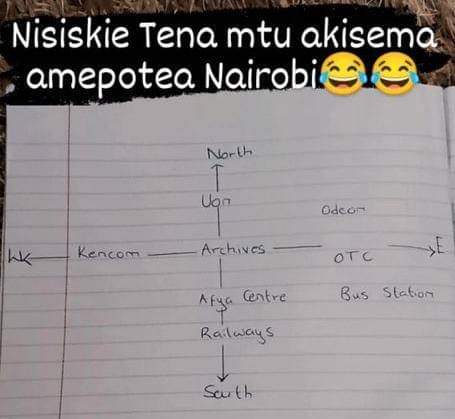 Nisiskie Tena mtu akisema
amepotea Nairobi😂😂
North
Uon
Odeon
W Kencom Archives OTC E
Afya Centre Bus Station
Railways
South